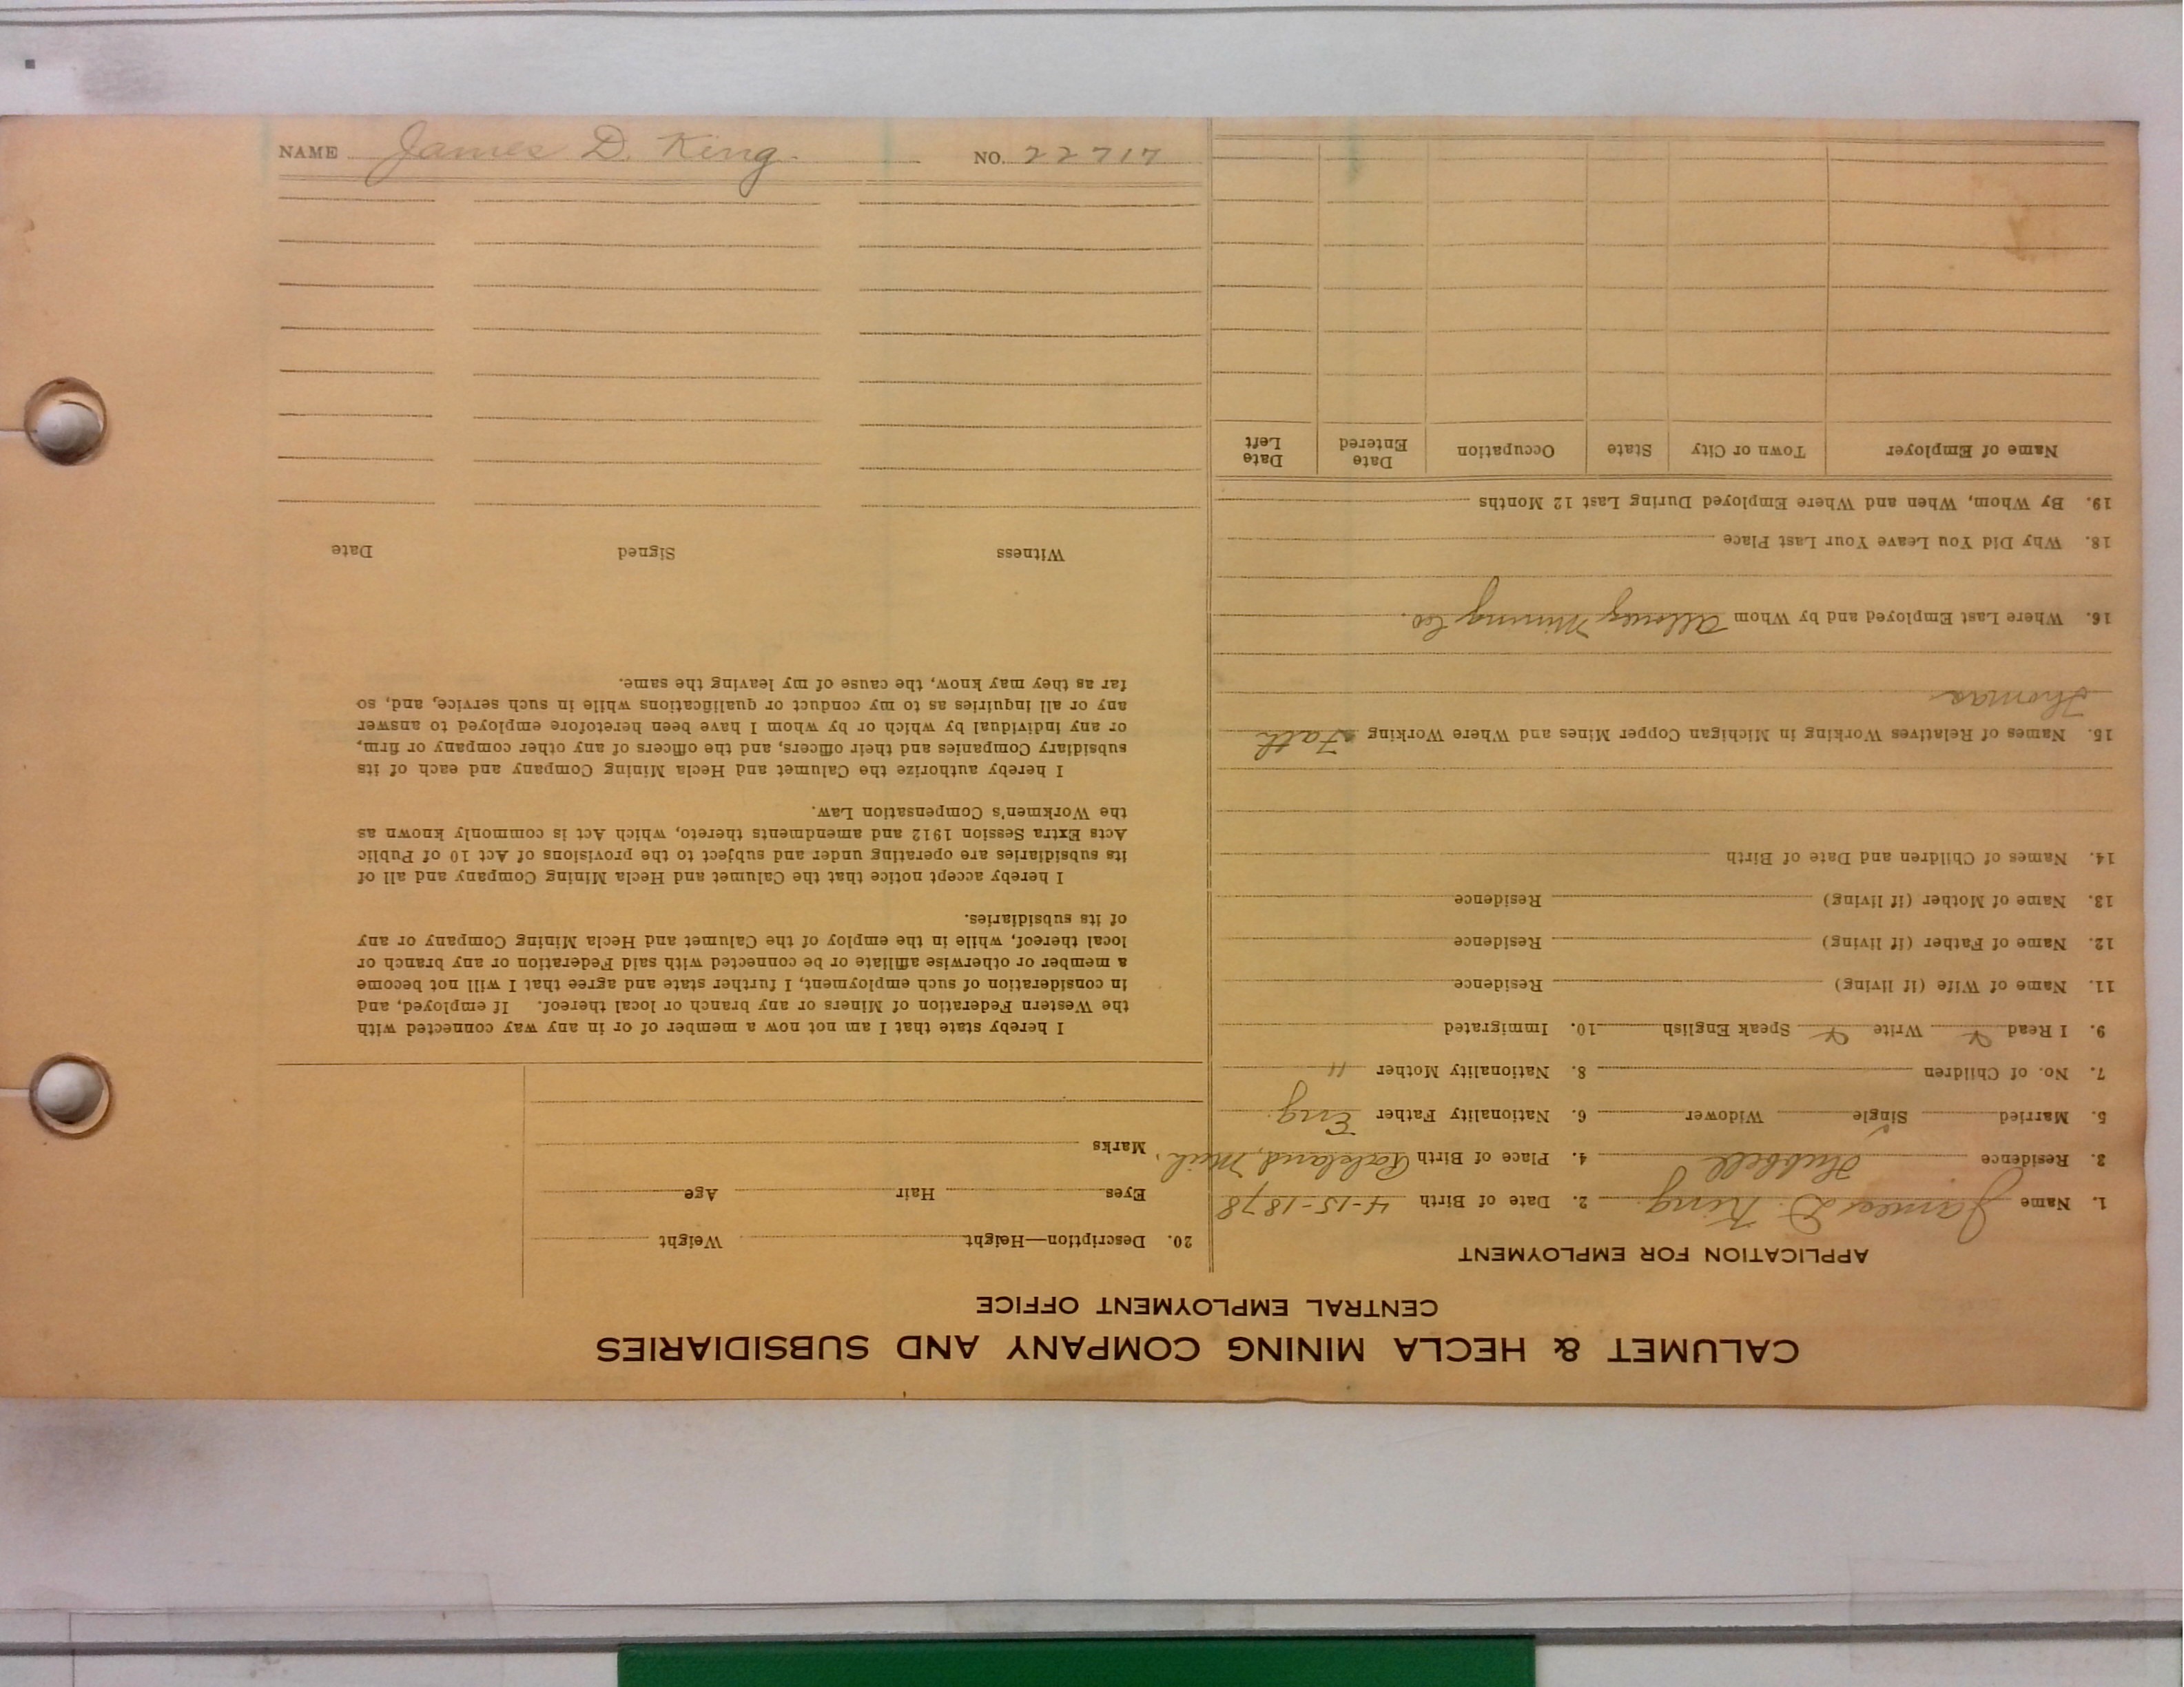 NAME James D. King. NO. 22717
CALUMET & HECLA MINING COMPANY AND SUBSIDIARIES
CENTRAL EMPLOYMENT OFFICE
APPLICATION FOR EMPLOYMENT
1. Name James D. King. 2. Date of Birth 4-15-1878
3. Residence Hubbell 4. Place of Birth Rockland, Mich.
5. Married Single Widower 6. Nationality Father Eng.
7. No. of Children 8. Nationality Mother "
9. I Read Write Speak English 10. Immigrated
11. Name of Wife (if living) Residence
12. Name of Father (if living) Residence
13. Name of Mother (if living) Residence
14. Names of Children and Date of Birth
15. Names of Relatives Working in Michigan Copper Mines and Where Working Fath
Thomas
16. Where Last Employed and by Whom Allouez Mining Co.
18. Why Did You Leave Your Last Place
19. By Whom, When and Where Employed During Last 12 Months
Name of Employer Town or City State Occupation Date Entered Date Left
20. Description—Height Weight
Eyes Hair Age
Marks
I hereby state that I am not now a member of or in any way connected with
the Western Federation of Miners or any branch or local thereof. If employed, and
in consideration of such employment, I further state and agree that I will not become
a member or otherwise affiliate or be connected with said Federation or any branch or
local thereof, while in the employ of the Calumet and Hecla Mining Company or any
of its subsidiaries.
I hereby accept notice that the Calumet and Hecla Mining Company and all of
its subsidiaries are operating under and subject to the provisions of Act 10 of Public
Acts Extra Session 1912 and amendments thereto, which Act is commonly known as
the Workmen's Compensation Law.
I hereby authorize the Calumet and Hecla Mining Company and each of its
subsidiary Companies and their officers, and the officers of any other company or firm,
or any individual by which or by whom I have been heretofore employed to answer
any or all inquiries as to my conduct or qualifications while in such service, and, so
far as they may know, the cause of my leaving the same.
Witness Signed Date